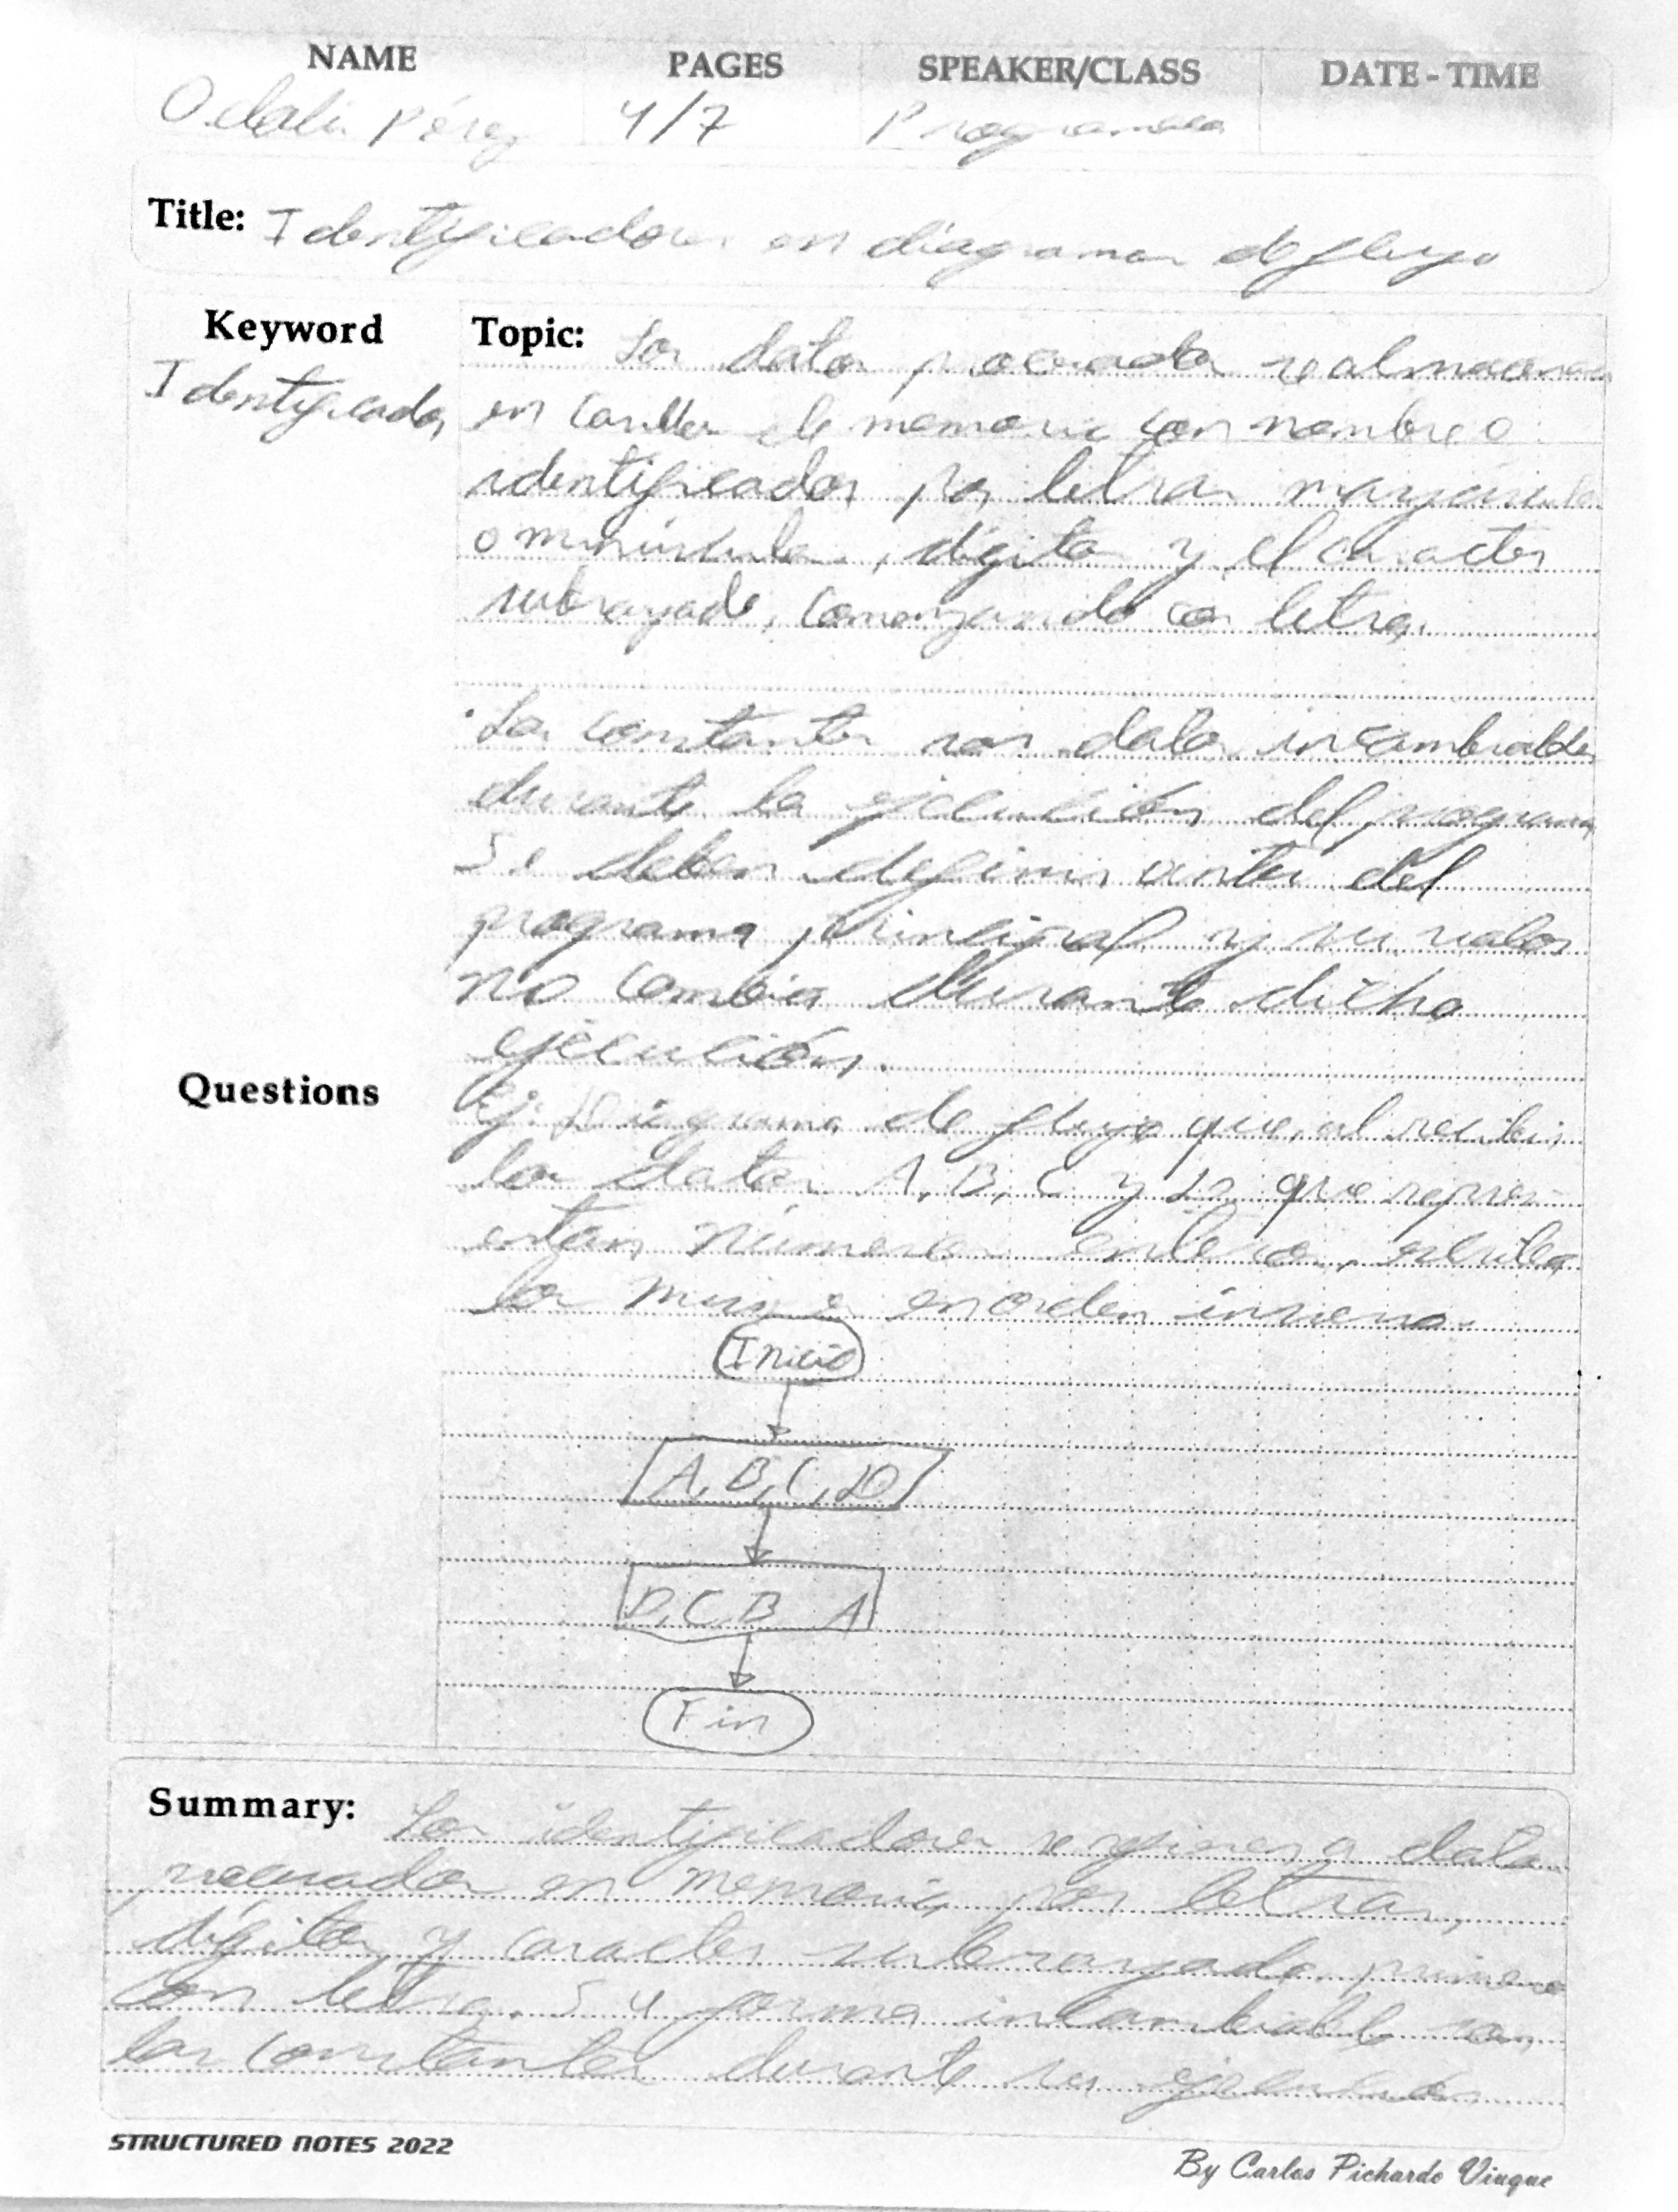 NAME PAGES SPEAKER/CLASS DATE - TIME
Odalis Pérez 4/7
Title: Identificadores en diagramas de flujo
Keyword
Identificador
Topic: Los datos procesados se almacenan
en casillas de memoria con nombre o
identificador, por letras mayúsculas
o minúsculas, dígitos y el caracter
subrayado, comenzando con letra.
· Las constantes son datos incambiables
durante la ejecución del programa
Se deben definir antes del
programa principal y su valor
no cambia durante dicha
ejecución.
Questions
Ej: Diagrama de flujo que, al recibir
los datos A, B, C y D que repres-
entan números enteros, escriba
los mismos en orden inverso.
Inicio
A, B, C, D
D, C, B A
Fin
Summary: Los identificadores refieren a datos
procesados en memoria, por letras,
dígitos y caracter subrayado, primero
con letra. Su forma incambiable son
las constantes durante su ejecución
STRUCTURED NOTES 2022
By Carlos Pichardo Viuque